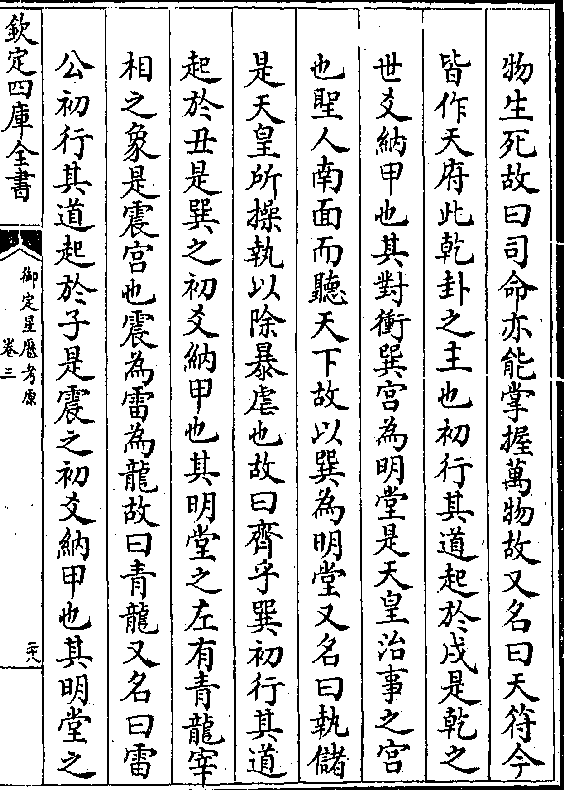 物生死故曰司命亦能掌握萬物故又名曰天符今
皆作天府此乾卦之主也初行其道起於戌是乾之
世爻納甲也其對衝巽宫為明堂是天皇治事之宫
也聖人南面而聽天下故以巽為明堂又名曰執儲
是天皇所操執以除暴虐也故曰齊乎巽初行其道
起於丑是巽之初爻納甲也其明堂之左有青龍宰
相之象是震宫也震為雷為龍故曰青龍又名曰雷
公初行其道起於子是震之初爻納甲也其明堂之
欽定四庫全書
御定星厯考原
卷三
二六